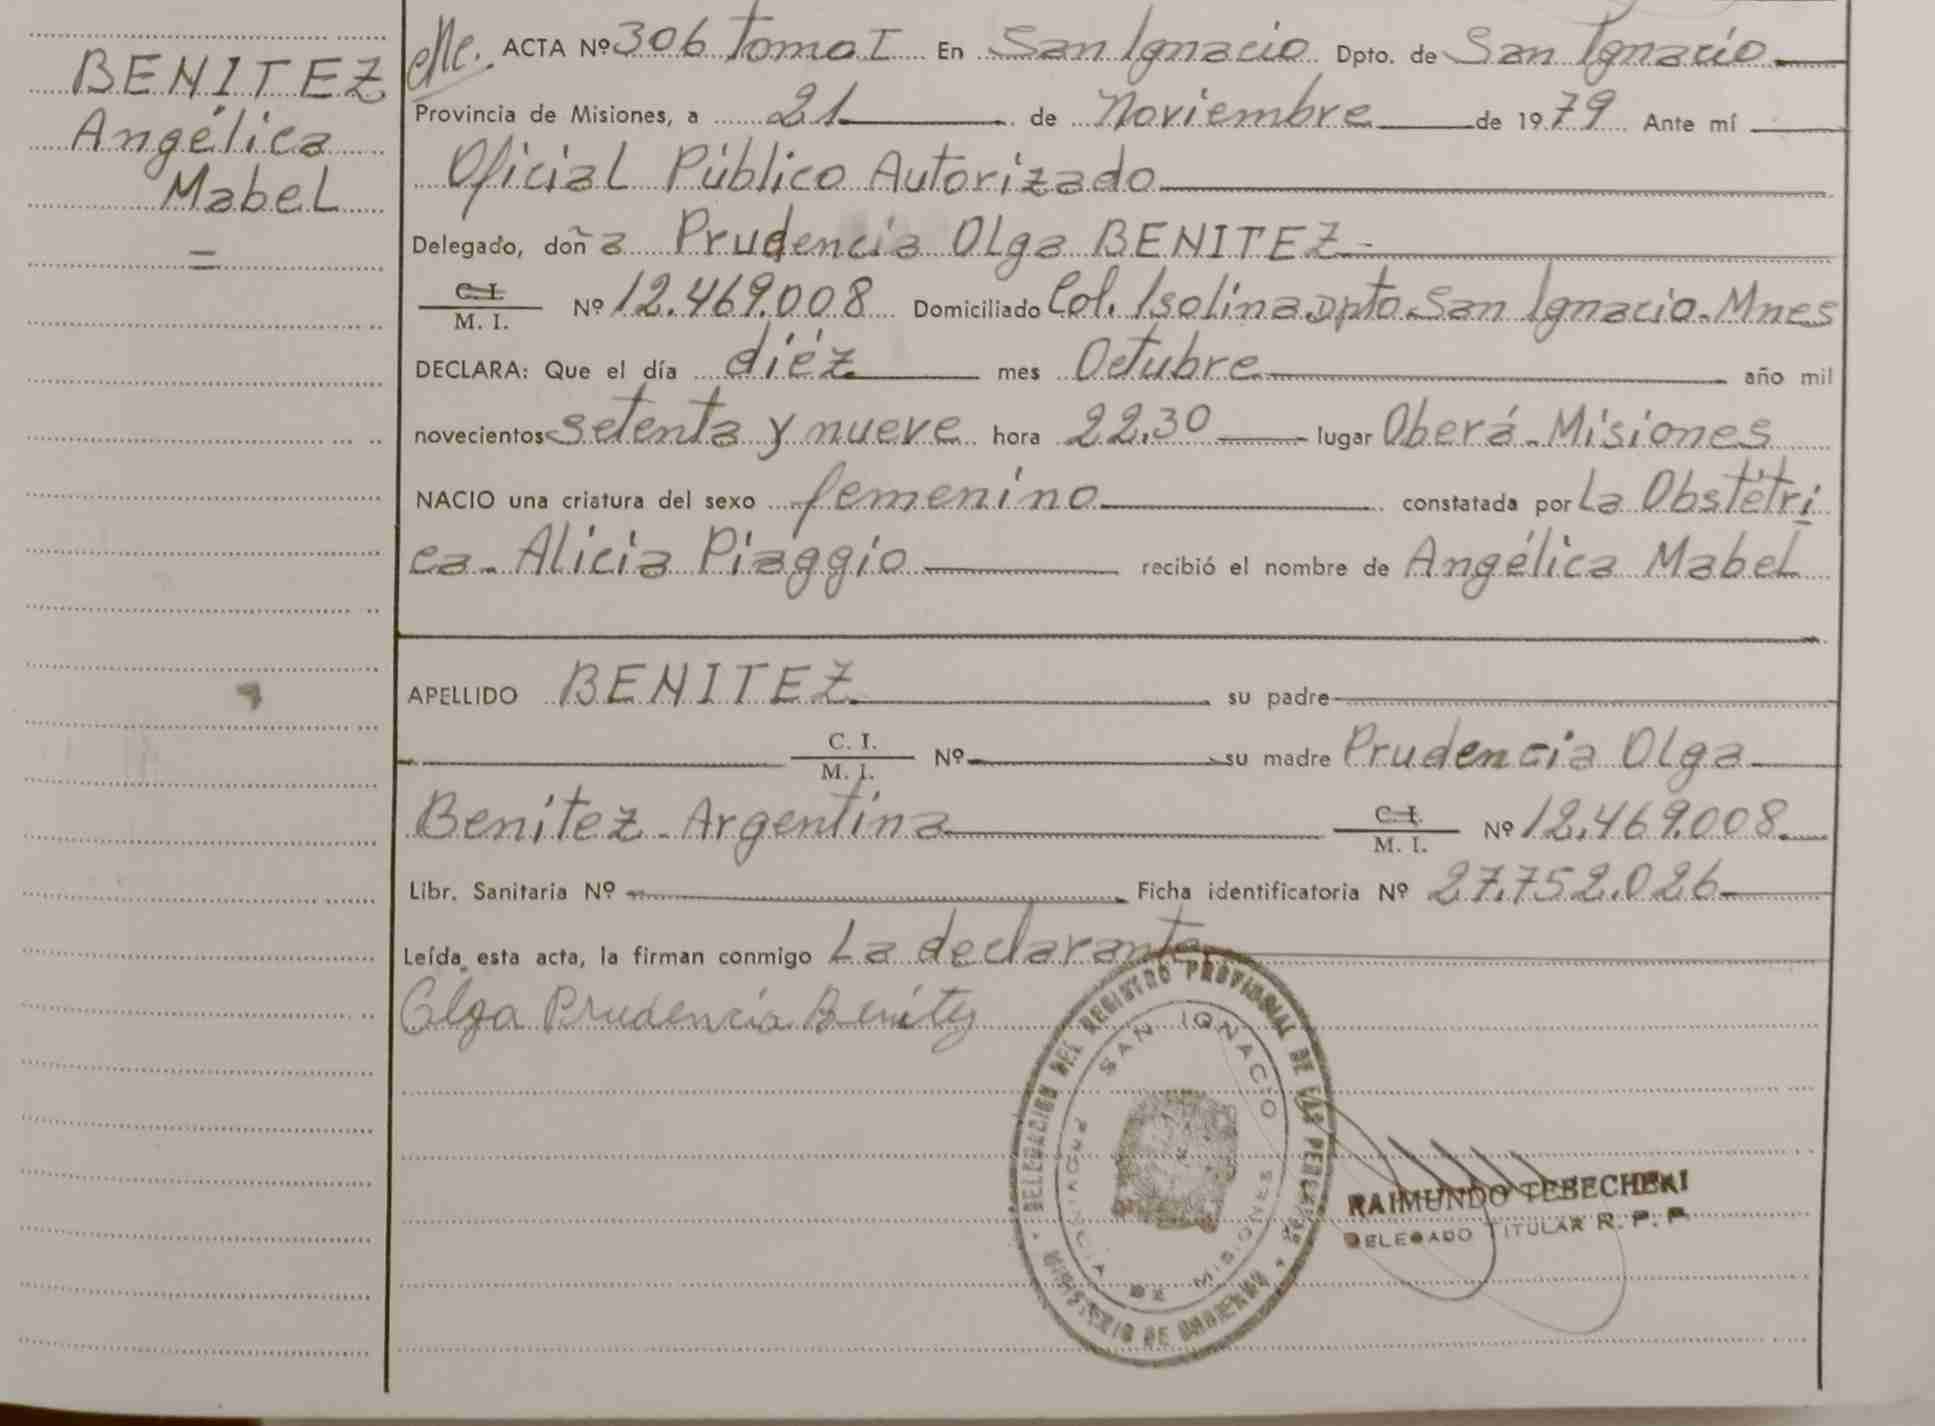 BENITEZ
Angélica
Mabel
=
ACTA Nº 306 Tomo I En San Ignacio Dpto. de San Ignacio
Provincia de Misiones, a 21 de Noviembre de 1979 Ante mí
Oficial Público Autorizado
Delegado, doña Prudencia Olga BENITEZ
C. I. / M. I. Nº 12.469.008 Domiciliado Col. Isolina Dpto. San Ignacio. Mnes
DECLARA: Que el día diéz mes Octubre año mil
novecientos setenta y nueve hora 22.30 lugar Oberá-Misiones
NACIO una criatura del sexo femenino constatada por La Obstétri
ca. Alicia Piaggio recibió el nombre de Angélica Mabel
APELLIDO BENITEZ su padre
C. I. / M. I. Nº su madre Prudencia Olga
Benítez - Argentina C. I. / M. I. Nº 12.469.008
Libr. Sanitaria Nº Ficha identificatoria Nº 27.752.026
Leída esta acta, la firman conmigo La declarante
Olga Prudencia Benitez
DELEGACION DEL REGISTRO PROVINCIAL DE LAS PERSONAS
SAN IGNACIO
PROVINCIA DE MISIONES
MINISTERIO DE GOBIERNO
RAIMUNDO TEBECHERI
DELEGADO TITULAR R. P. P.